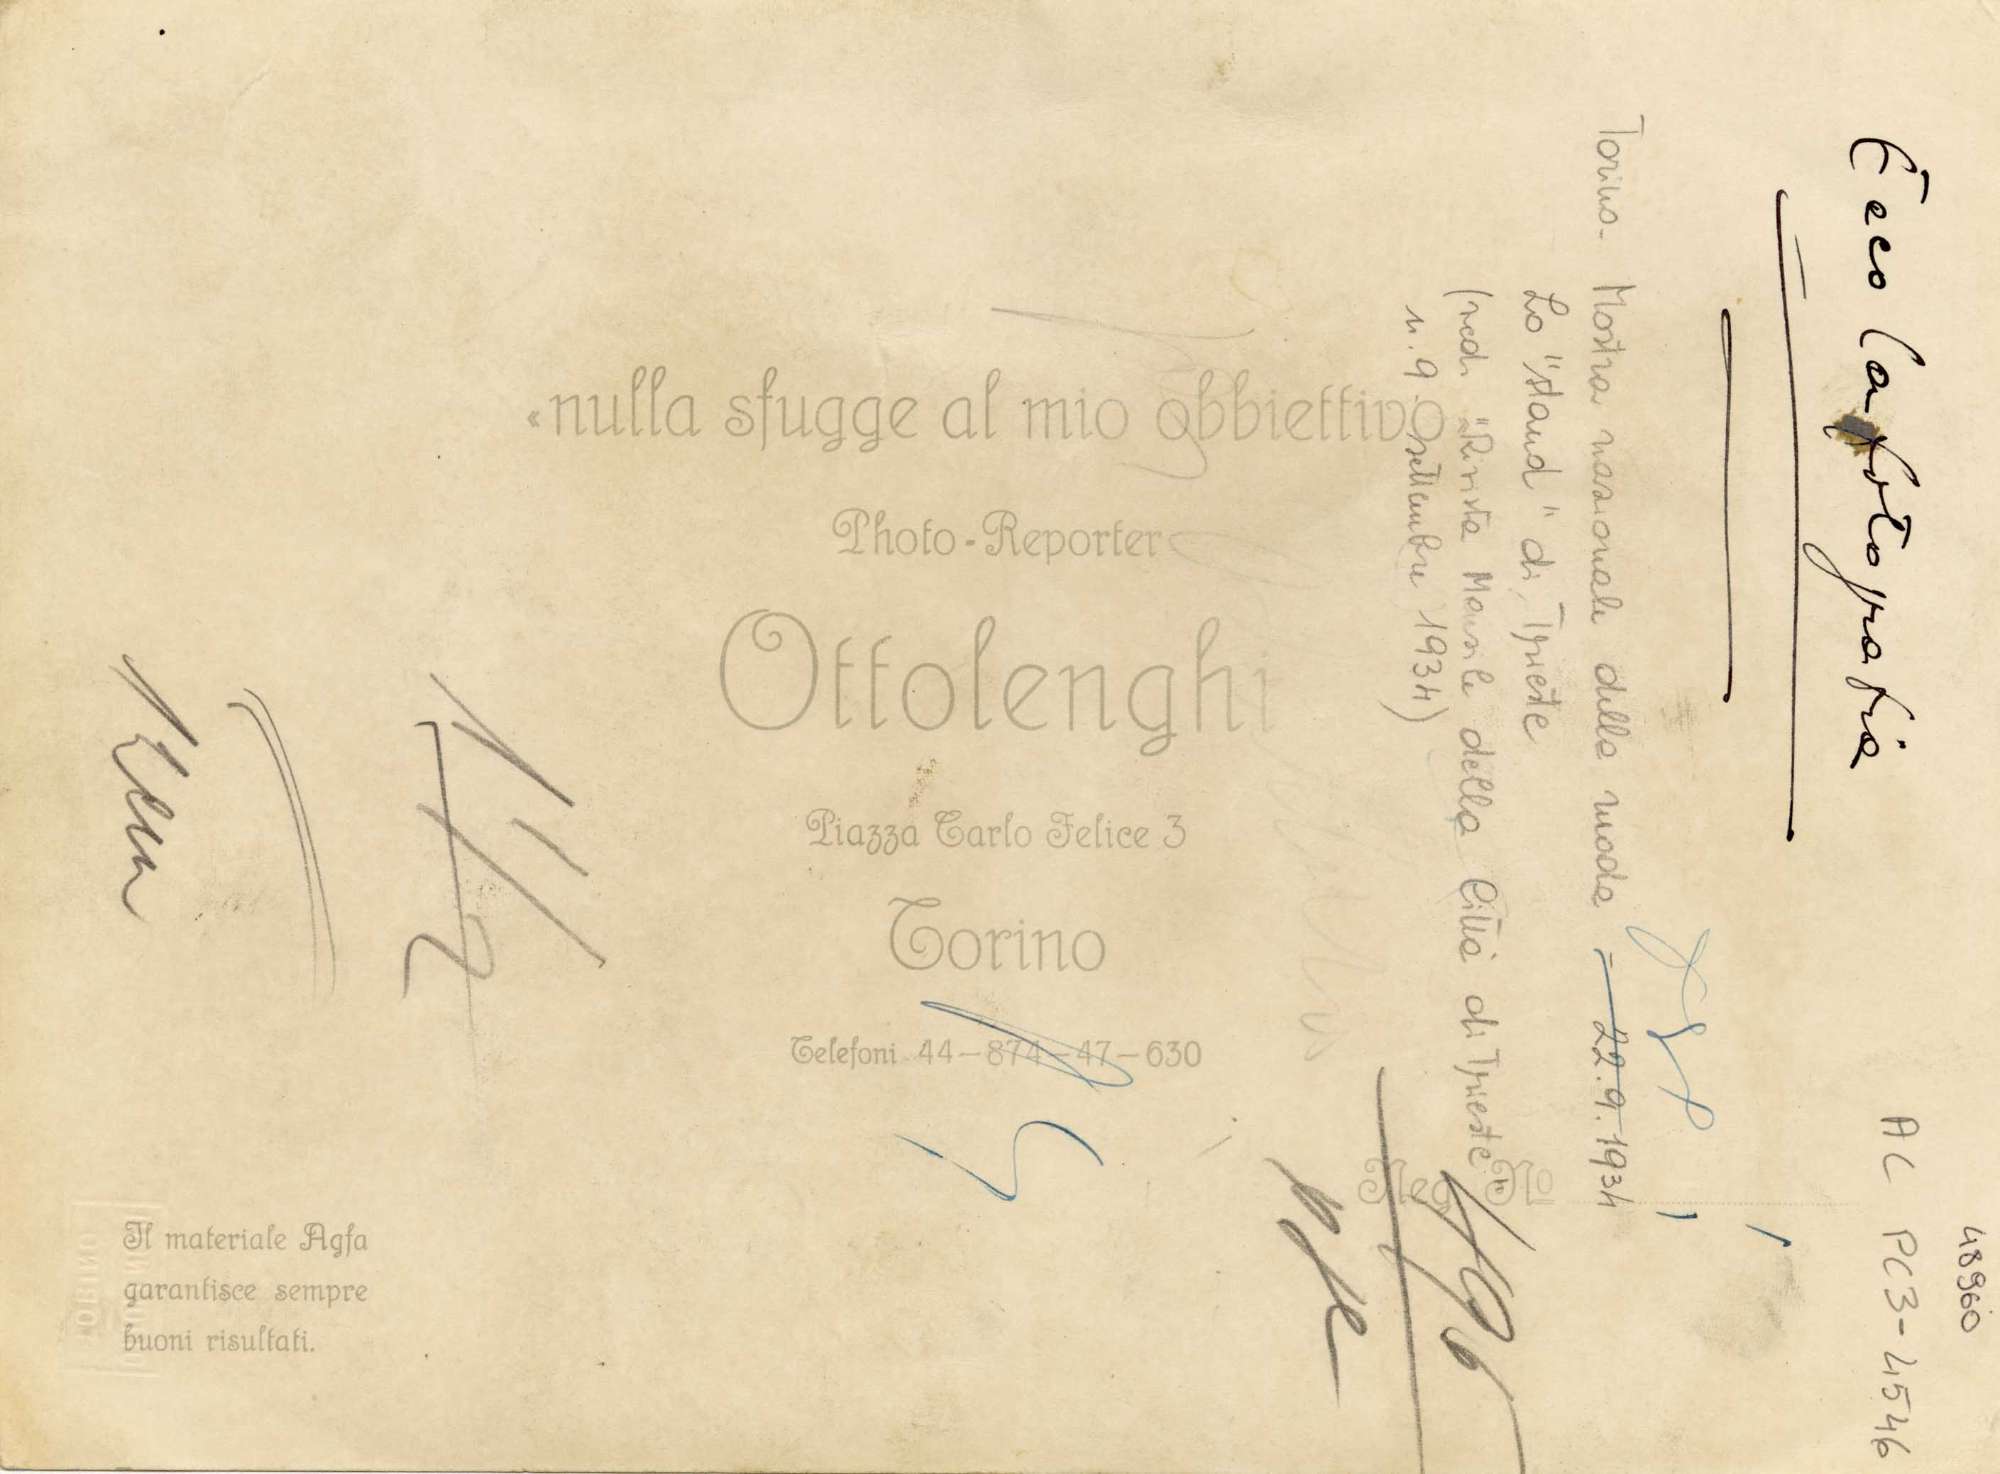 «nulla sfugge al mio obbiettivo
Photo-Reporter
Ottolenghi
Piazza Carlo Felice 3
Torino
Telefoni 44-874-47-630
Neg. No
Il materiale Agfa
garantisce sempre
buoni risultati.
48960
AC PC3-4546
Ecco la fotografia
Torino - Mostra nazionale della moda = 22.9.1934
Lo "stand" di Trieste
(vedi "Rivista Mensile della Città di Trieste"
n. 9 settembre 1934)